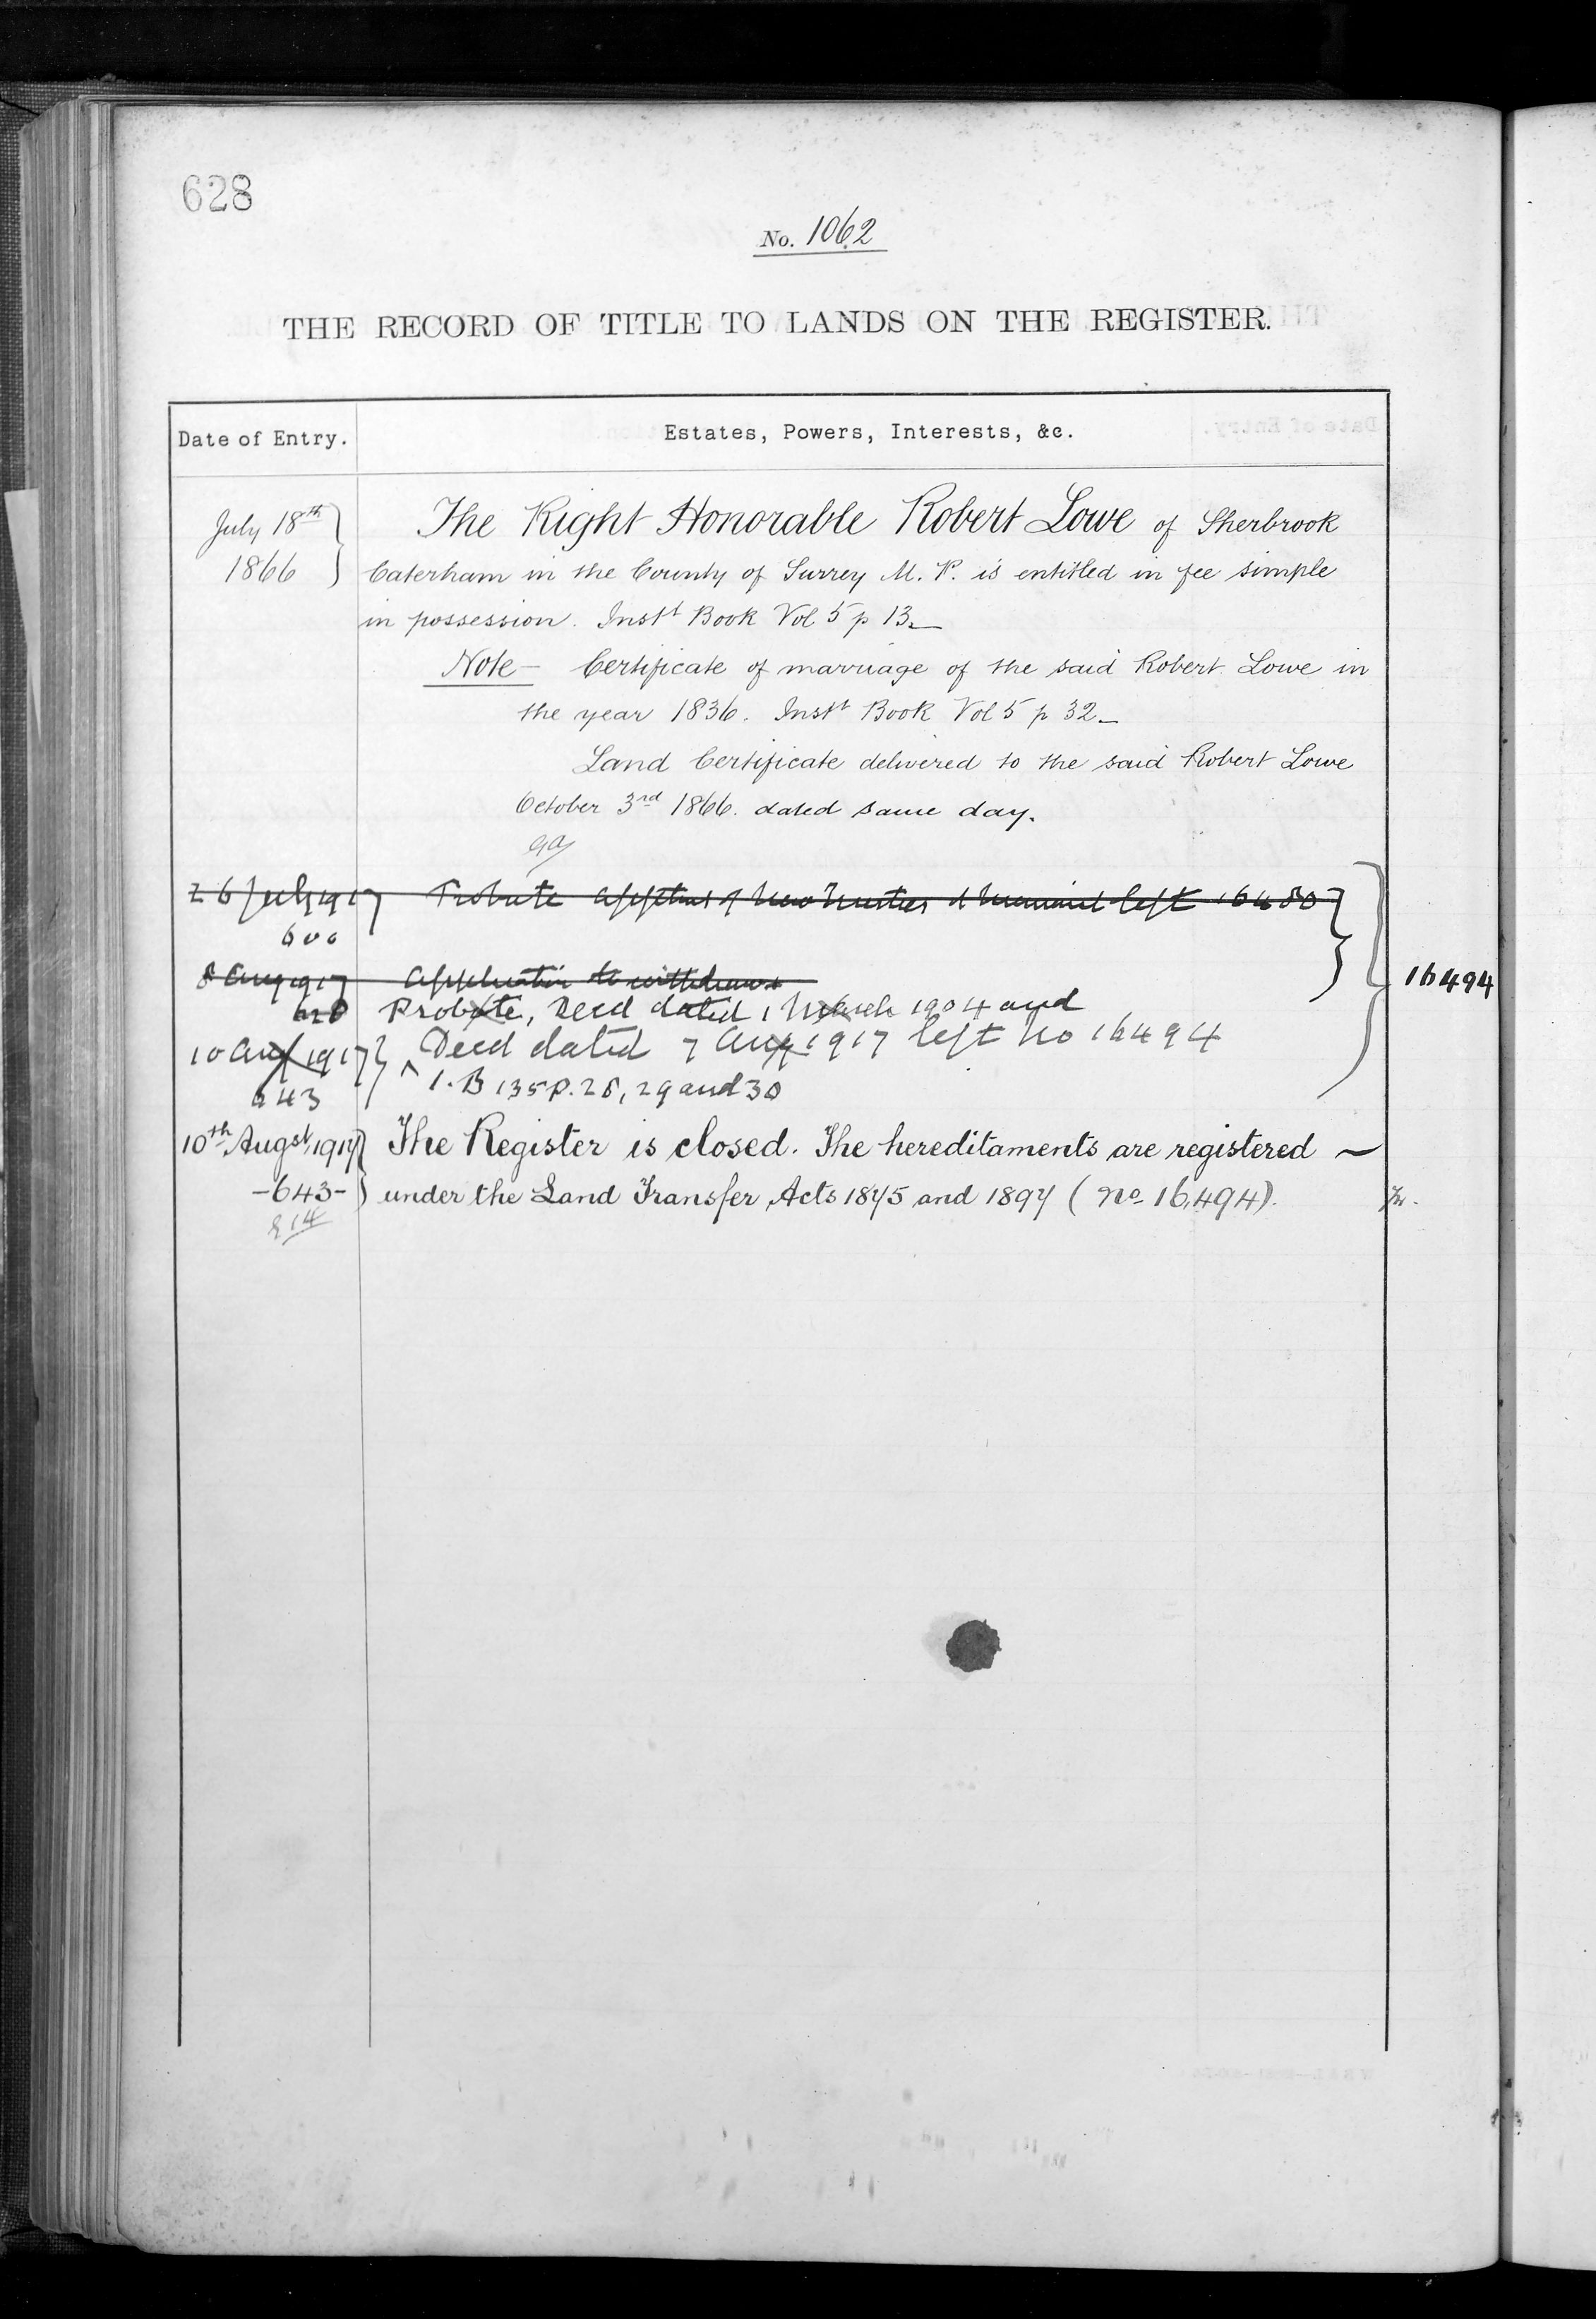 628
No. 1062
THE RECORD OF TITLE TO LANDS ON THE REGISTER.
Date of Entry.
Estates, Powers, Interests, &c.
July 18th 1866
The Right Honorable Robert Lowe of Sherbrook
Caterham in the County of Surrey M. P. is entitled in fee simple
in possession. Instt Book Vol 5 p 13
Note – Certificate of marriage of the said Robert Lowe in
the year 1836. Instt Book Vol 5 p 32
Land Certificate delivered to the said Robert Lowe
October 3rd 1866. dated same day.
26 July 1917 Probate of New Trustees left 16480
600
8 Aug 1917 Application to withdraw
Probate, Deed dated 1 March 1904 and
16494
10 Aug 1917 Deed dated 7 Aug 1917 left No 16494
643 I.B 135 P. 28, 29 and 30
10th Augst 1917 The Register is closed. The hereditaments are registered
-643- under the Land Transfer Acts 1875 and 1897 (No 16,494).